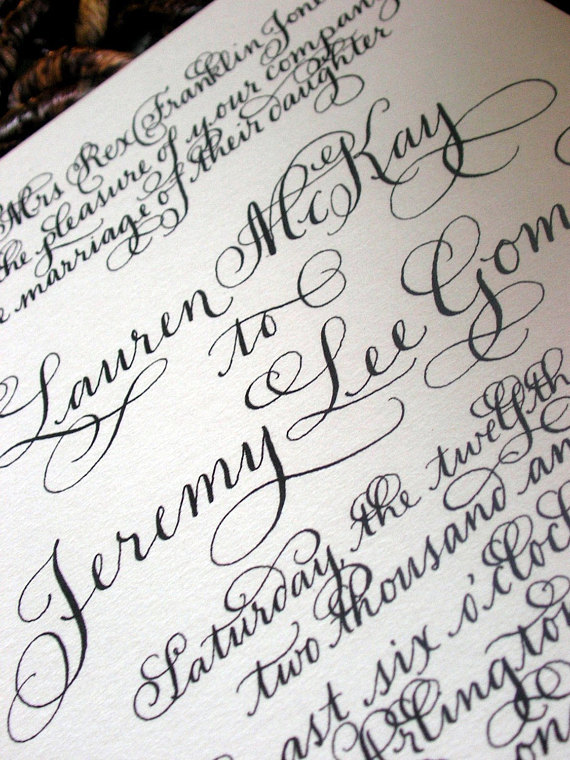 Mrs Rex Franklin Jone
the pleasure of your company
marriage of their daughter
Lauren McKay
to
Jeremy Lee Gom
Saturday, the twelfth
two thousand an
ast six o'clock
Arlington
on